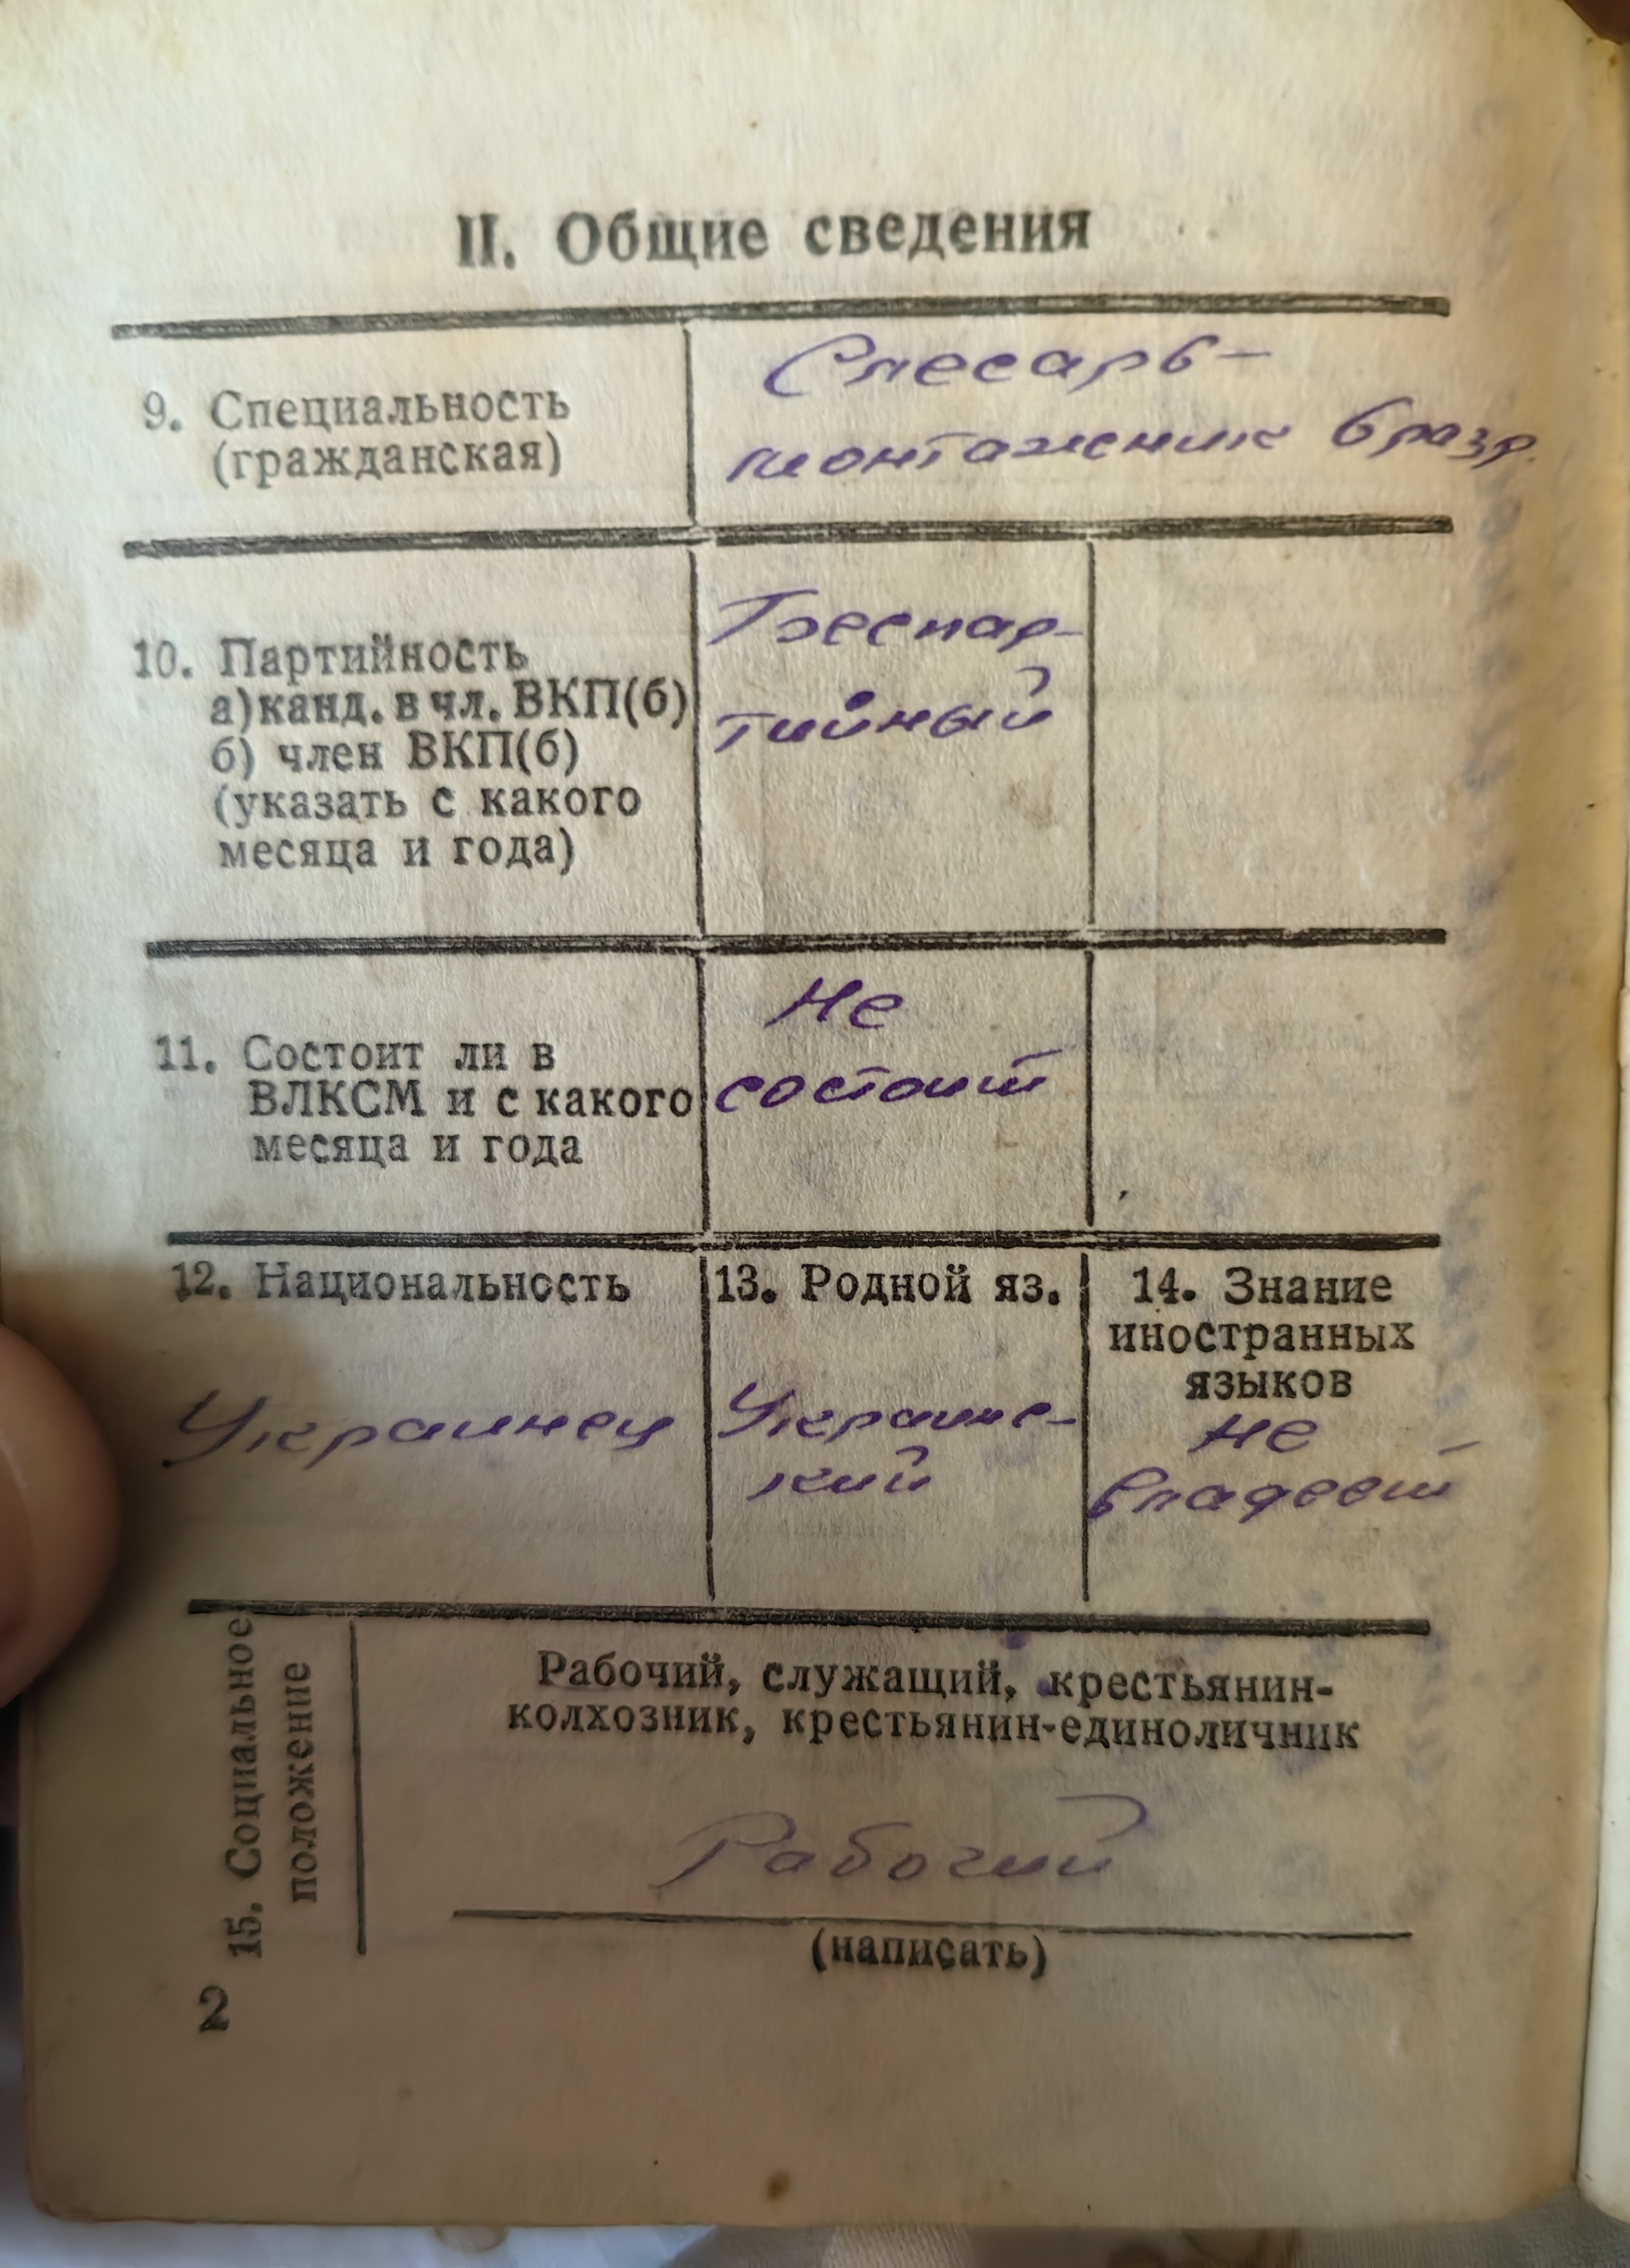 II. Общие сведения
9. Специальность
(гражданская)
Слесарь-
монтажник 6 разр.
10. Партийность
а) канд. в чл. ВКП(б)
б) член ВКП(б)
(указать с какого
месяца и года)
Беспар-
тийный
11. Состоит ли в
ВЛКСМ и с какого
месяца и года
Не
состоит
12. Национальность
Украинец
13. Родной яз.
Украинс-
кий
14. Знание
иностранных
языков
не
владеет
15. Социальное
положение
Рабочий, служащий, крестьянин-
колхозник, крестьянин-единоличник
Рабочий
(написать)
2